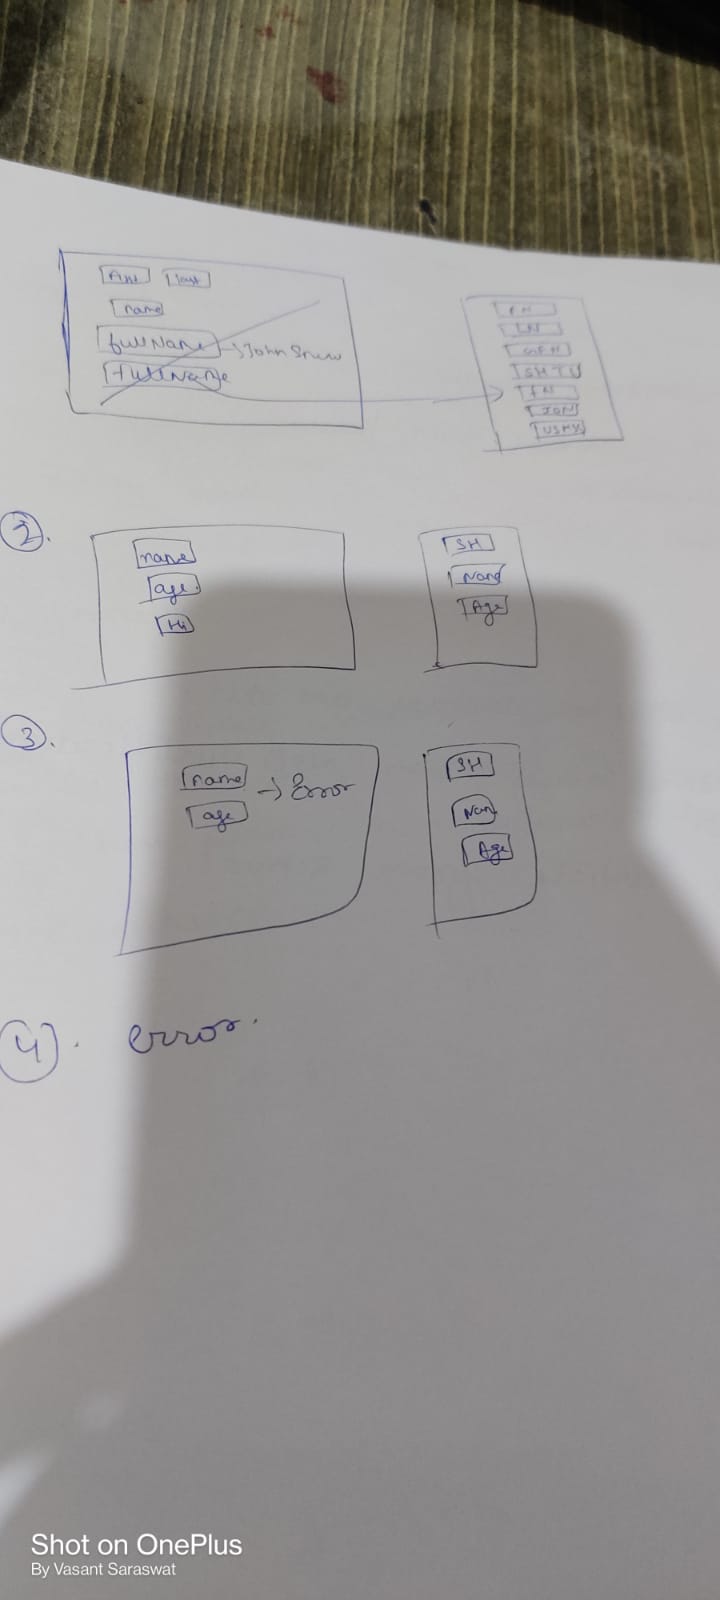 last
name
fullName → John Snow
fullName
FN
LN
GFN
FN
②.
name
age.
Hi
SH
Name
Age
③.
name → Error
age
SH
Nam
Age
④. error.
Shot on OnePlus
By Vasant Saraswat